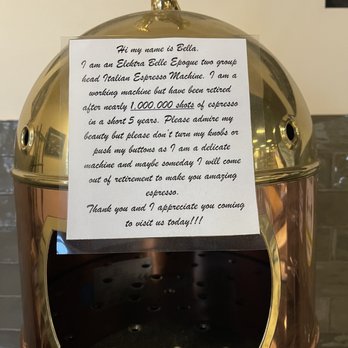 Hi my name is Bella.
I am an Elektra Belle Epoque two group
head Italian Espresso Machine. I am a
working machine but have been retired
after nearly 1,000,000 shots of espresso
in a short 5 years. Please admire my
beauty but please don't turn my knobs or
push my buttons as I am a delicate
machine and maybe someday I will come
out of retirement to make you amazing
espresso.
Thank you and I appreciate you coming
to visit us today!!!